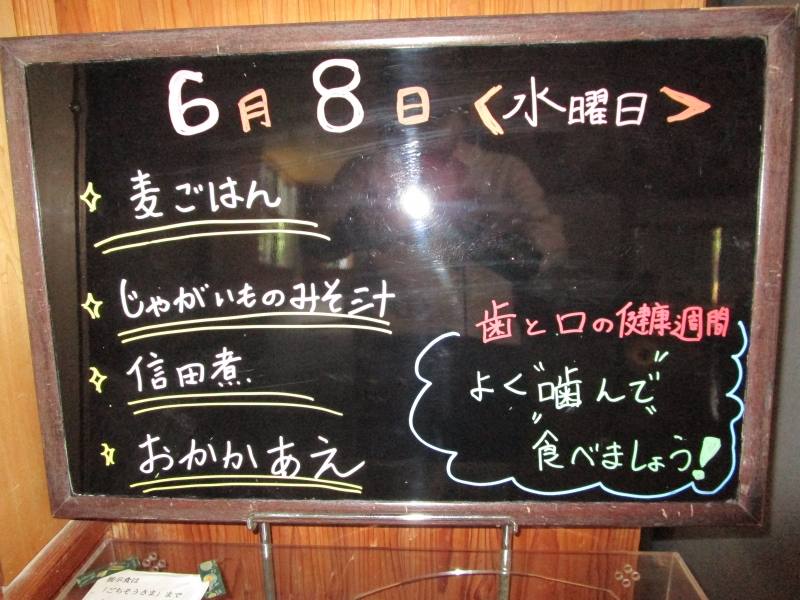 6月8日<水曜日>
麦ごはん
じゃがいものみそ汁
信田煮
おかかあえ
歯と口の健康週間
よく噛んで
食べましょう!
展示食は
「ごちそうさま」まで